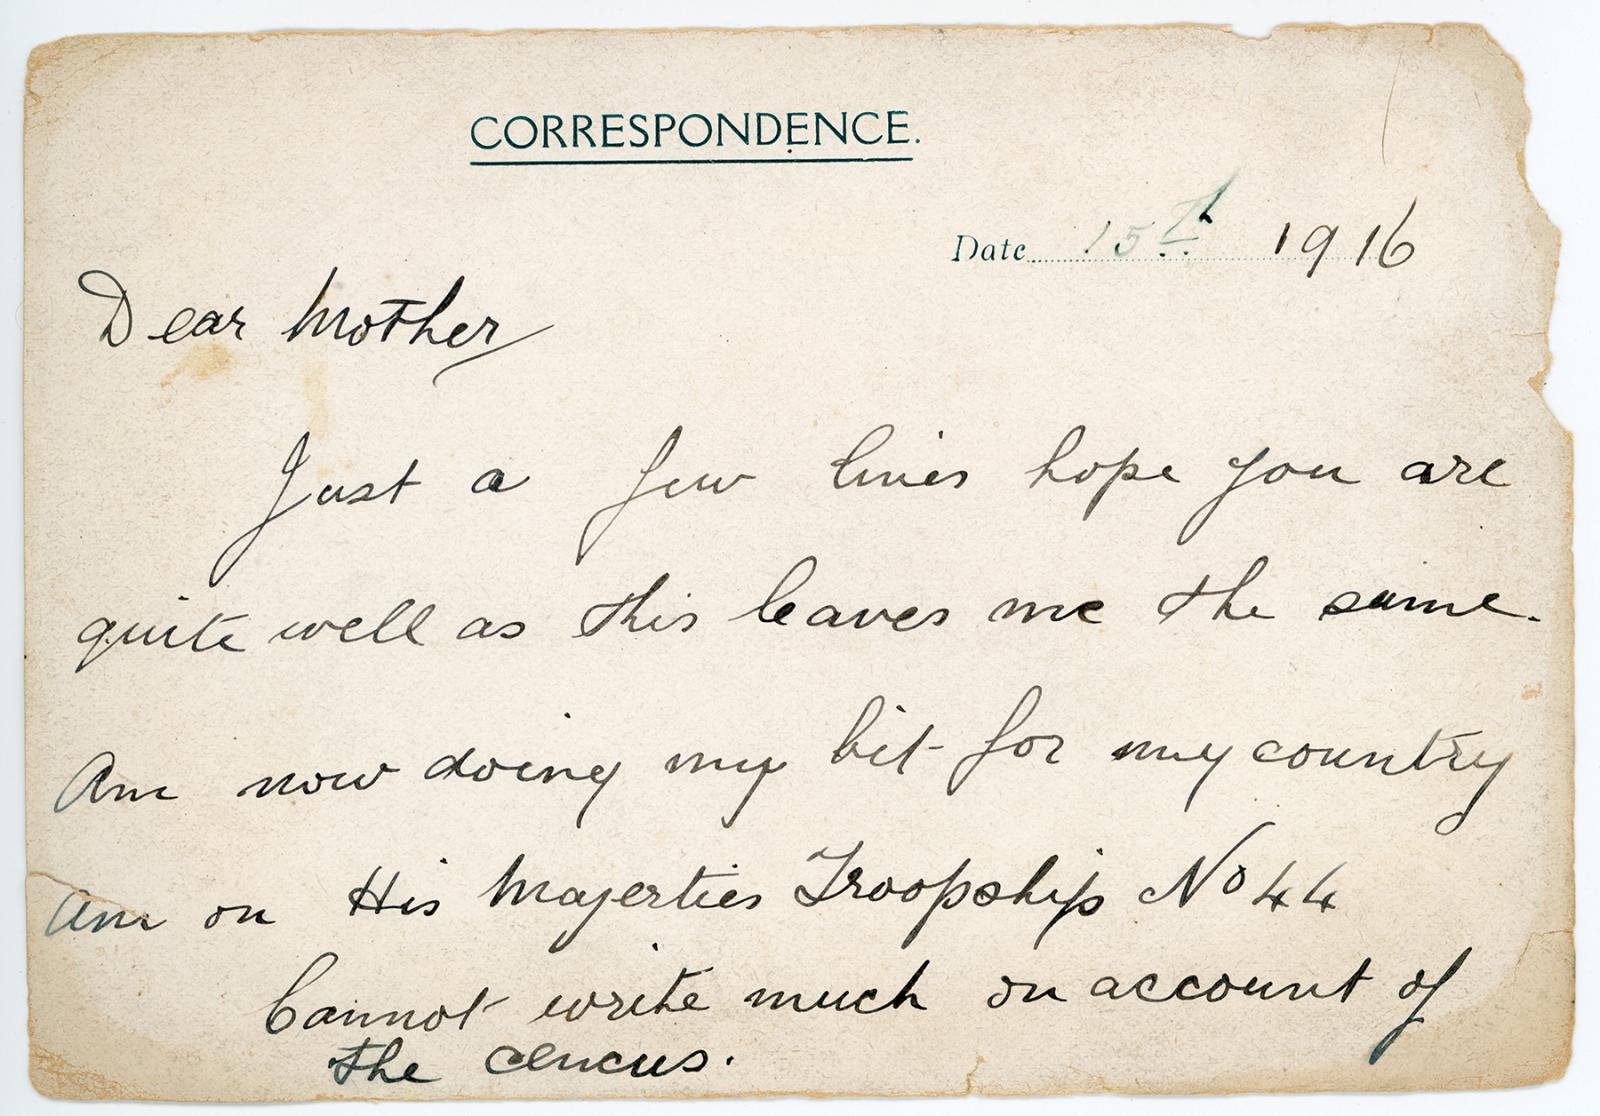 CORRESPONDENCE.
Date 15th 1916
Dear Mother
Just a few lines hope you are
quite well as this leaves me the same.
Am now doing my bit for my country
Am on His Majerties Troopship No 44
Cannot write much on account of
the cencus.